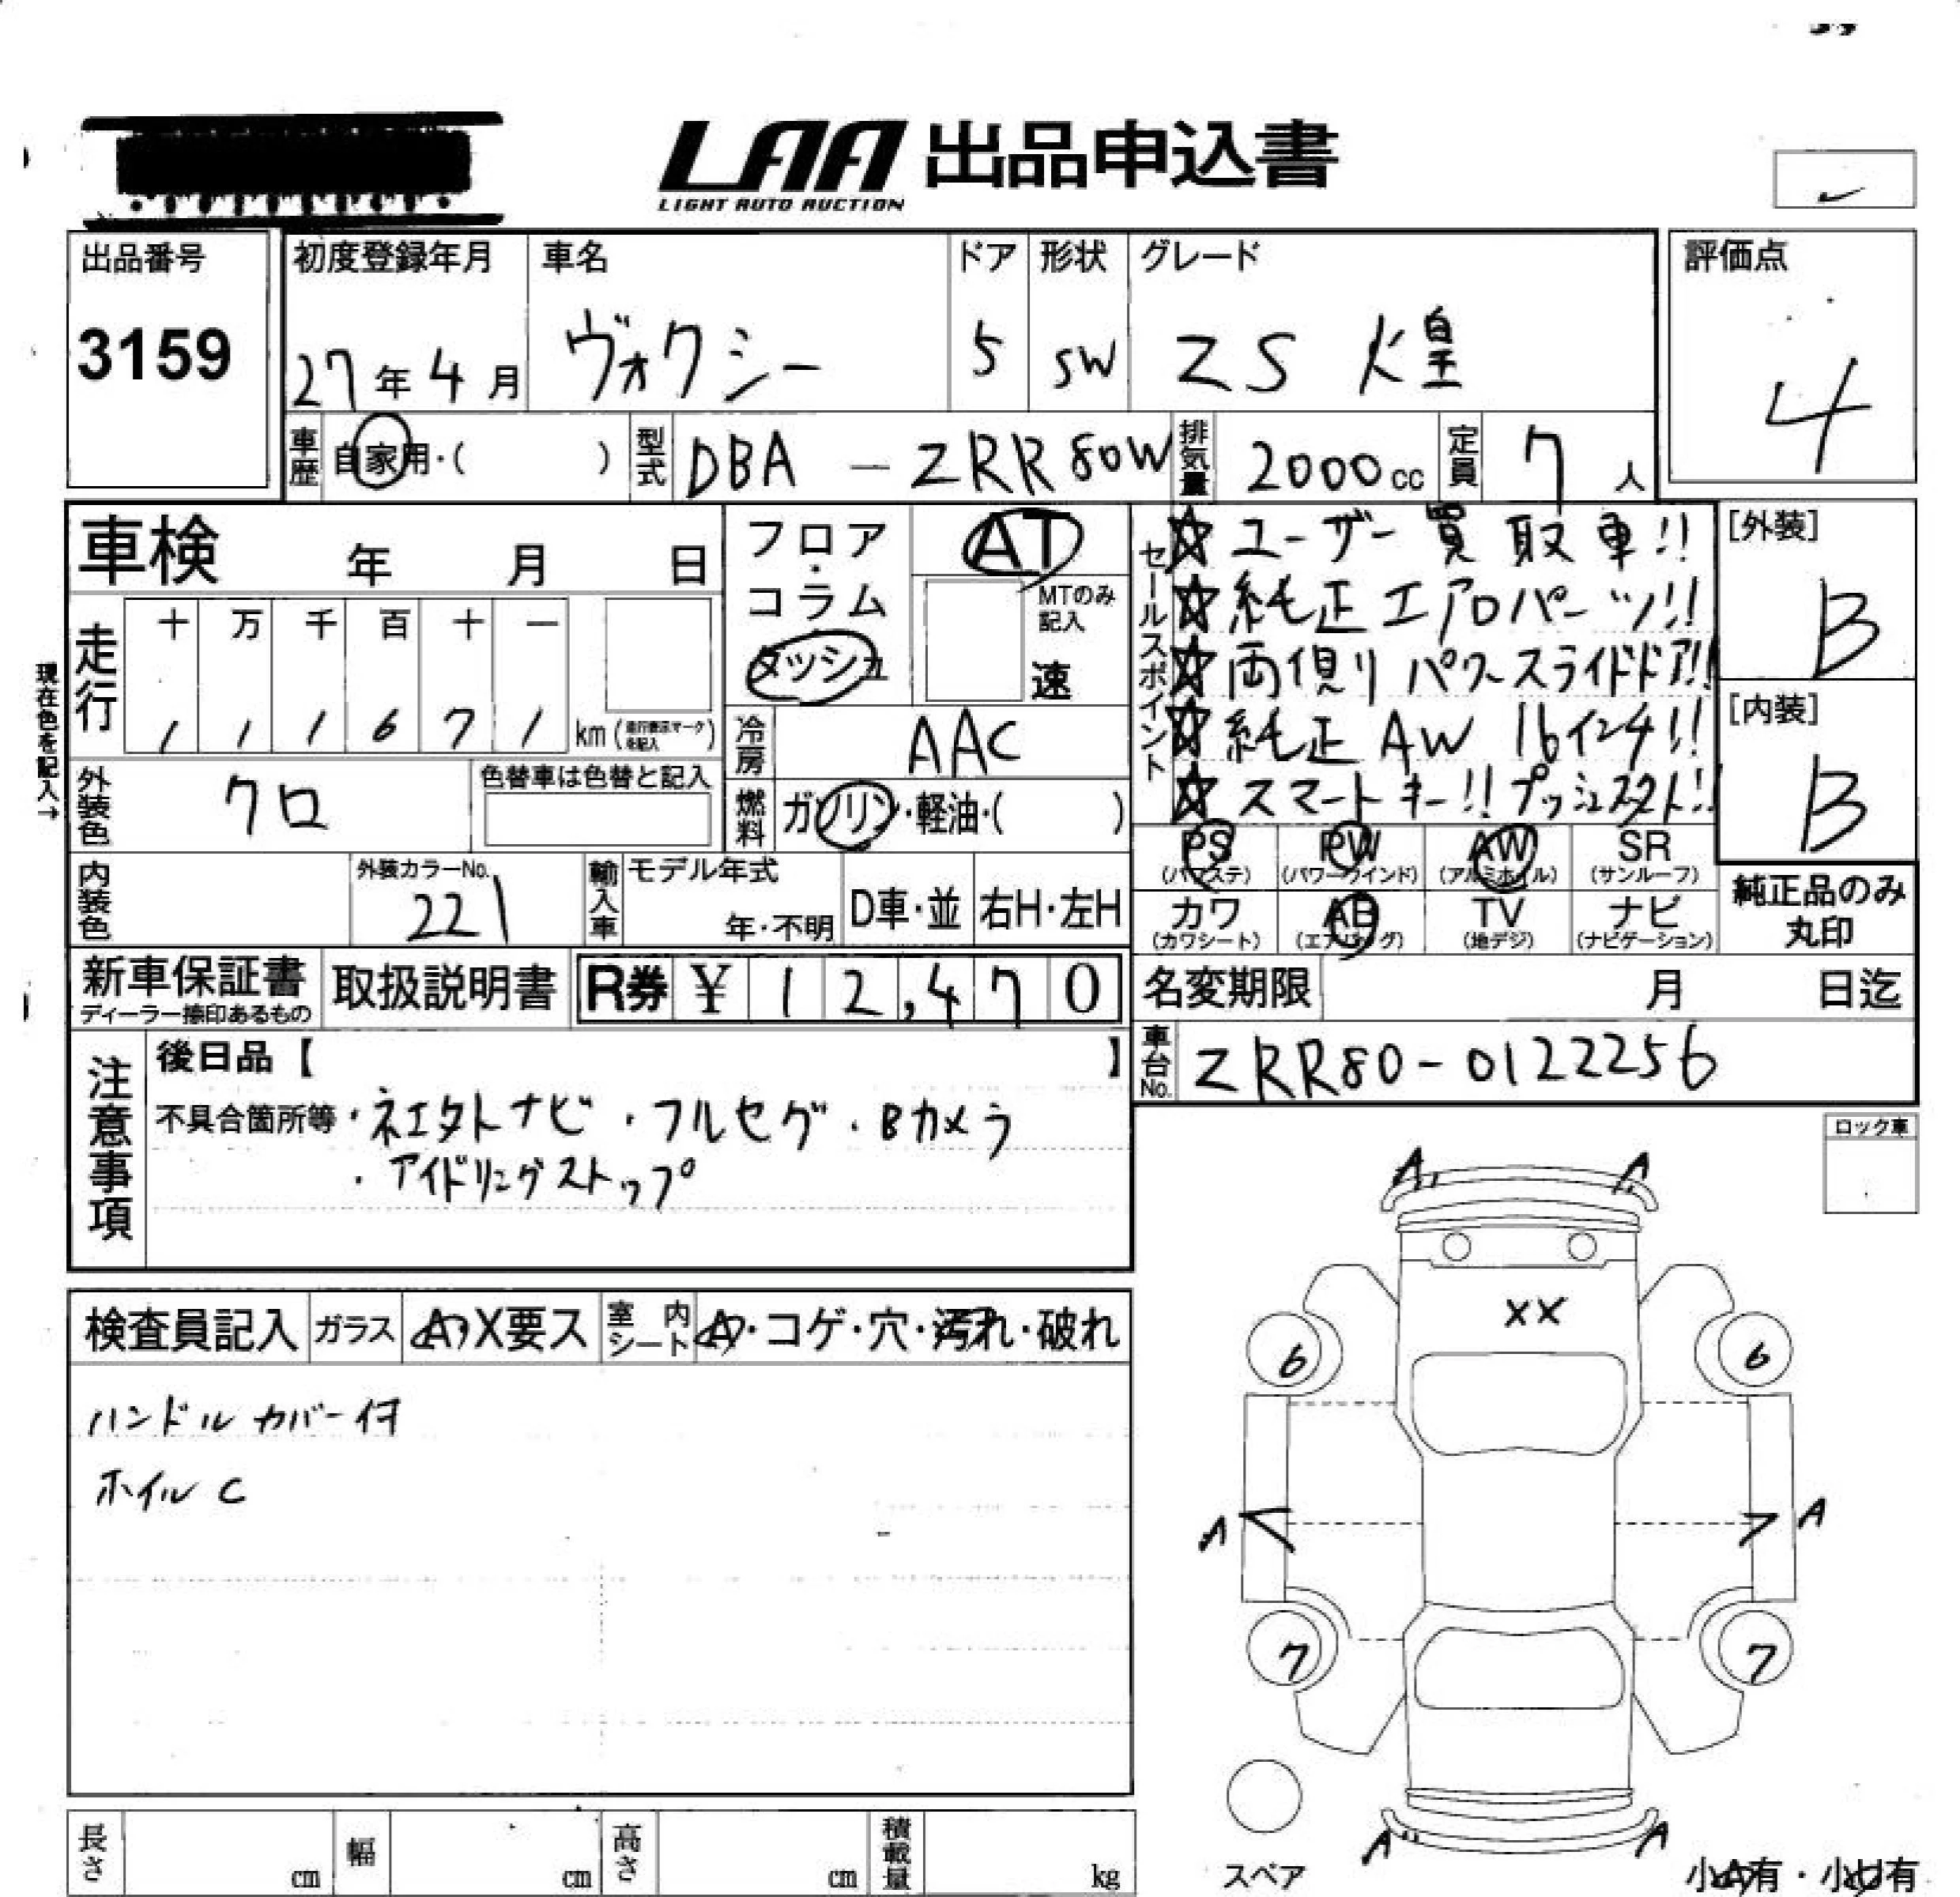 LAA 出品申込書
LIGHT AUTO AUCTION
出品番号
3159
初度登録年月
27年4月
車名
ヴォクシー
ドア
5
形状
SW
グレード
ZS 煌
評価点
4
車歴 自家用・( )
型式 DBA - ZRR80W
排気量 2000cc
定員 7人
車検 年 月 日
走行 十 万 千 百 十 一
1 1 1 6 7 1 km (走行表示マークを記入)
現在色を記入→
外装色 クロ
色替車は色替と記入
内装色
外装カラーNo.
221
フロア・
コラム・
ダッシュ
AT
MTのみ
記入
速
冷房 AAC
燃料 ガソリン・軽油・( )
輸入車 モデル年式
年・不明
D車・並
右H・左H
セールスポイント
☆ユーザー買取車!!
☆純正エアロパーツ!!
☆両側パワースライドドア!!
☆純正AW 16インチ!!
☆スマートキー!!プッシュスタート!!
[外装]
B
[内装]
B
PS PW AW SR
(パワステ) (パワーウインド) (アルミホイル) (サンルーフ)
カワ AB TV ナビ
(カワシート) (エアバッグ) (地デジ) (ナビゲーション)
純正品のみ
丸印
新車保証書
ディーラー捺印あるもの
取扱説明書
R券 ¥ 12,470
名変期限 月 日迄
車台No. ZRR80-0122256
注意事項
後日品【 】
不具合箇所等・ネエクトナビ・フルセグ・Bカメラ
・アイドリングストップ
ロック車
検査員記入 ガラス A・X要ス 室内シート A・コゲ・穴・汚れ・破れ
ハンドルカバー付
ホイルC
A A
XX
6 6
A A
7 7
A A
スペア
小A有・小U有
長さ cm
幅 cm
高さ cm
積載量 kg